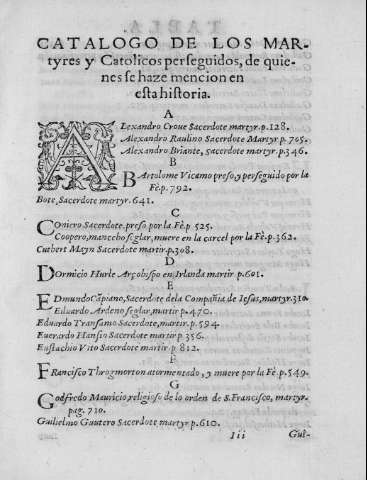 CATALOGO DE LOS MAR-
tyres y Catolicos perseguidos, de quie-
nes se haze mencion en
esta historia.
A
ALexandro Croue Sacerdote martyr. p. 128.
Alexandro Raulino Sacerdote Martyr p. 705.
Alexandro Briante, sacerdote martyr. p. 346.
B
BArtolome Vicamo preso y perseguido por la
Fè. p. 792.
Bote, Sacerdote martyr. 641.
C
COniero Sacerdote, preso por la Fè. p. 525.
Coopero, mancebo seglar, muere en la carcel por la Fè. p. 362.
Cutbert Mayn Sacerdote martir. p. 308.
D
DOrmicio Hurle Arçobispo en Irlanda martir p. 601.
E
EDmundo Cãpiano, Sacerdote dela Compañia de Iesus, martyr. 310.
Eduardo Ardeno seglar, martir p. 470.
Eduardo Transamo Sacerdote, martir. p. 594.
Euerardo Hansio Sacerdote martir p. 356.
Eustachio Vito Sacerdote martir p. 812.
F
FRancisco Throgmorton atormentado, y muere por la Fè p. 549.
G
GOdfredo Mauricio, religioso de lo orden de S. Francisco, martyr.
pag. 710.
Guilielmo Guutero Sacerdote martyr p. 610.
Iii Gui-